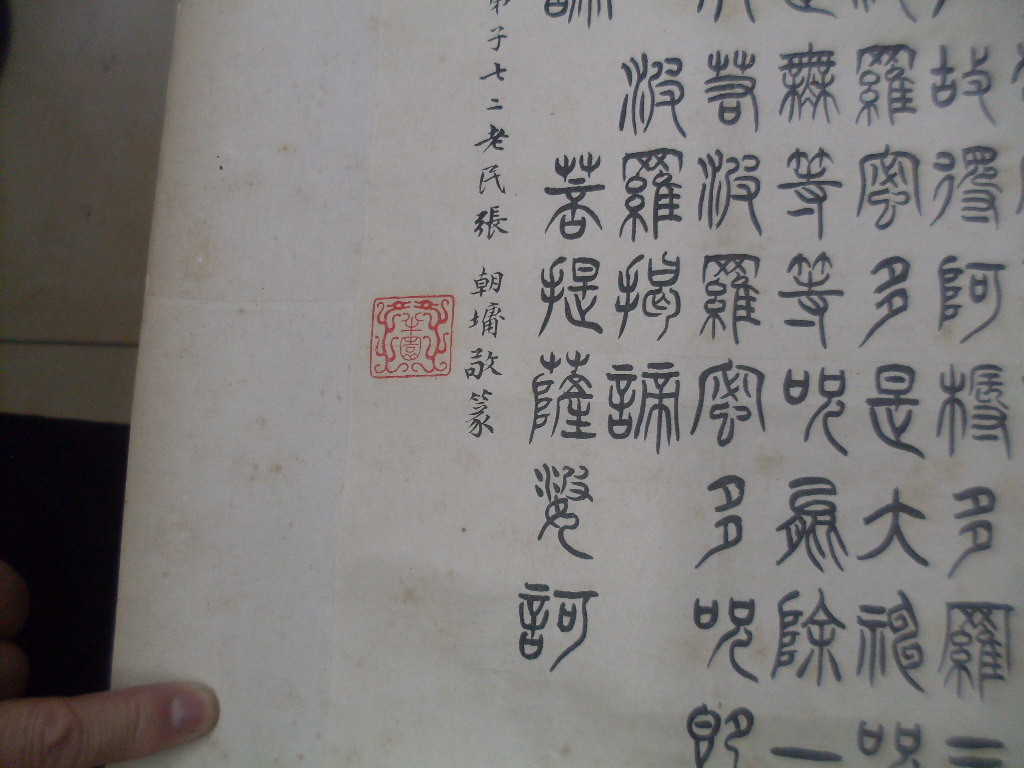 故得阿耨多羅三
羅蜜多是大神咒
無等等咒能除一
若波羅蜜多咒即
波羅揭諦
菩提薩婆訶
子七二老民張朝墉敬篆